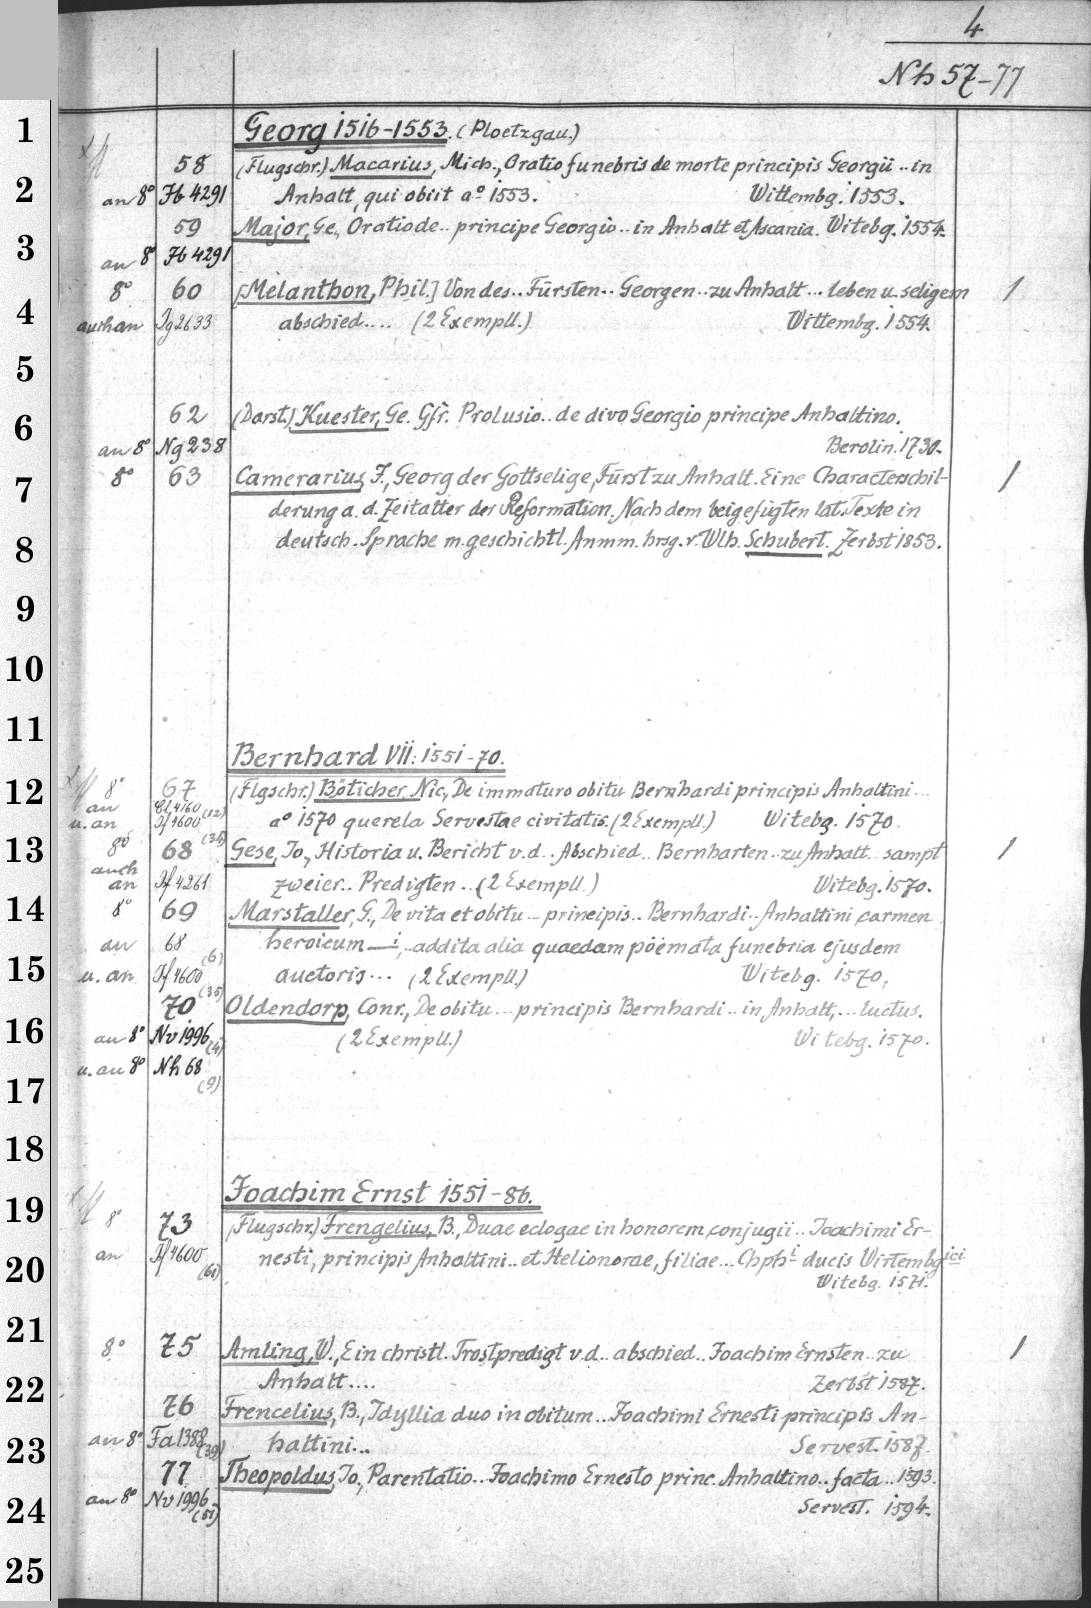 4
Nh 57-77
1
Georg 1516-1553. (Ploetzgau.)
58 (Flugschr.) Macarius, Mich., Oratio funebris de morte principis Georgii .. in
2
an 8° Fb 4291 Anhalt, qui obiit a° 1553. Wittembg. 1553.
59 Major, Ge., Oratio de .. principe Georgio .. in Anhalt et Ascania. Witebg. 1554.
3
an 8° Fb 4291
8° 60 [Melanthon, Phil.] Von des .. Fürsten .. Georgen .. zu Anhalt ... leben u. seligem 1
4
auch an Jg 2633 abschied .... (2 Exempll.) Wittembg. 1554.
5
62 (Darst.) Kuester, Ge. Gfr. Prolusio .. de divo Georgio principe Anhaltino.
6
an 8° Ng 238 Berolin. 1730.
8° 63 Camerarius, J., Georg der Gottselige, Fürst zu Anhalt. Eine Characterschil- 1
7
derung a. d. Zeitatter der Reformation. Nach dem beigefügten lat. Texte in
8
deutsch. Sprache m. geschichtl. Anmm. hrsg. v. Wlh. Schubert. Zerbst 1853.
9
10
11
Bernhard VII. 1551-70.
12
8° 67 (Flgschr.) Böticher, Nic., De immaturo obitu Bernhardi principis Anhaltini ...
an 4160 (12)
u. an If 4600 (36) a° 1570 querela Servestae civitatis. (2 Exempll.) Witebg. 1570.
13
8° 68 Gese, Jo., Historia u. Bericht v. d .. Abschied .. Bernharten .. zu Anhalt .. sampt 1
auch an If 4261 zweier .. Predigten .. (2 Exempll.) Witebg. 1570.
14
8° 69 Marstaller, G., De vita et obitu ... principis .. Bernhardi .. Anhaltini carmen
an 68 (6) heroicum —; .. addita alia quaedam pöëmata funebria ejusdem
15
u. an If 4600 (35) auctoris ... (2 Exempll.) Witebg. 1570.
70 Oldendorp, Conr., De obitu ... principis Bernhardi .. in Anhalt, ... luctus.
16
an 8° Nv 1996 (4) (2 Exempll.) Witebg. 1570.
u. an 8° Nh 68 (9)
17
18
Joachim Ernst 1551-86.
19
8° 73 (Flugschr.) Frengelius, B., Duae eclogae in honorem conjugii .. Joachimi Er-
an If 4600 (61) nesti, principis Anhaltini .. et Helionorae, filiae ... Chphi ducis Wirtembgici
20
Witebg. 1571.
21
8° 75 Amling, W., Ein christl. Trostpredigt v. d .. abschied .. Joachim Ernsten .. zu 1
22
Anhalt .... Zerbst 1587.
76 Frencelius, B., Idyllia duo in obitum .. Joachimi Ernesti principis An-
23
an 8° Fa 1388 (39) haltini ... Servest. 1587.
77 Theopoldus, Jo., Parentatio .. Joachimo Ernesto princ. Anhaltino .. facta .. 1593.
24
an 8° Nv 1996 (51) Servest. 1594.
25